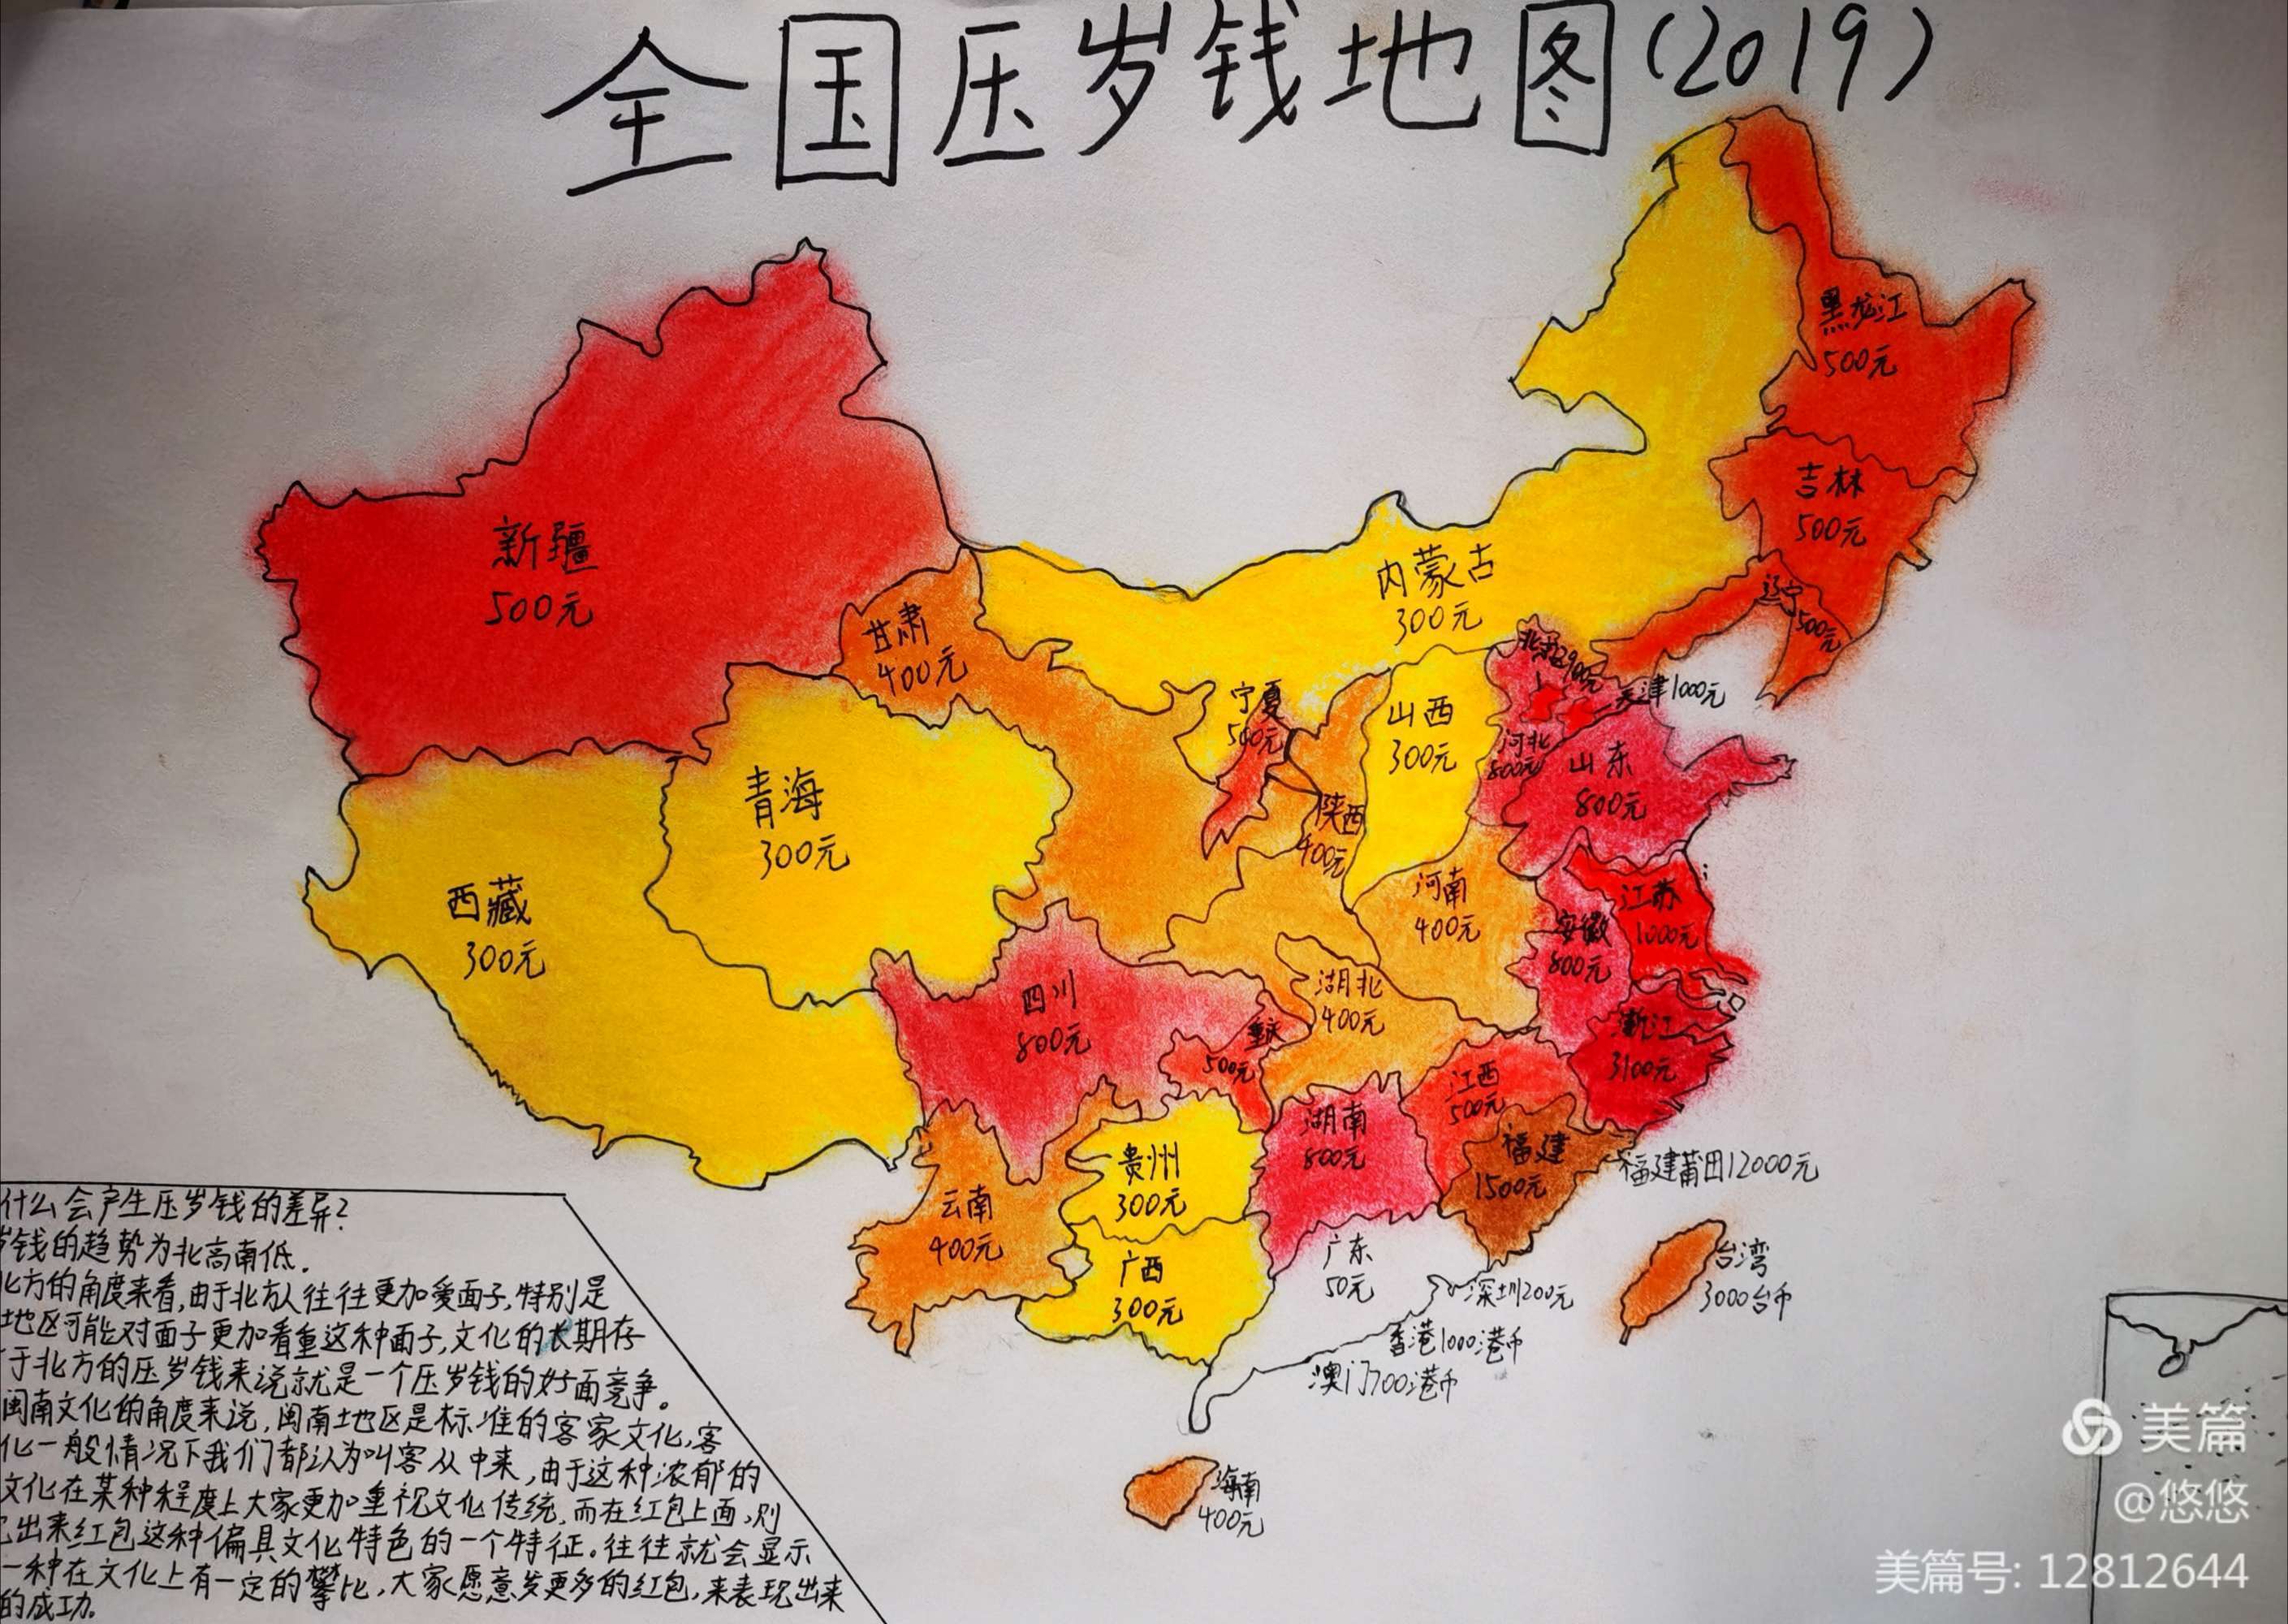 全国压岁钱地图(2019)
黑龙江
500元
吉林
500元
辽宁
500元
新疆
500元
内蒙古
300元
甘肃
400元
北京2900元
天津1000元
宁夏
500元
山西
300元
河北
800元
山东
800元
青海
300元
陕西
400元
西藏
300元
河南
400元
江苏
1000元
安徽
800元
四川
800元
重庆
500元
湖北
400元
浙江
3100元
江西
500元
湖南
800元
福建
1500元
福建莆田12000元
贵州
300元
云南
400元
广西
300元
广东
50元
深圳200元
香港1000港币
澳门700港币
台湾
3000台币
海南
400元
什么会产生压岁钱的差异?
岁钱的趋势为北高南低.
北方的角度来看,由于北方人往往更加爱面子,特别是
地区可能对面子更加看重这种面子,文化的长期存
于北方的压岁钱来说就是一个压岁钱的好面竞争。
闽南文化的角度来说,闽南地区是标准的客家文化,客
化一般情况下我们都认为叫客从中来,由于这种浓郁的
文化在某种程度上大家更加重视文化传统,而在红包上面,则
出来红包这种偏具文化特色的一个特征。往往就会显示
一种在文化上有一定的攀比,大家愿意发更多的红包,来表现出来
的成功。
美篇
@悠悠
美篇号: 12812644